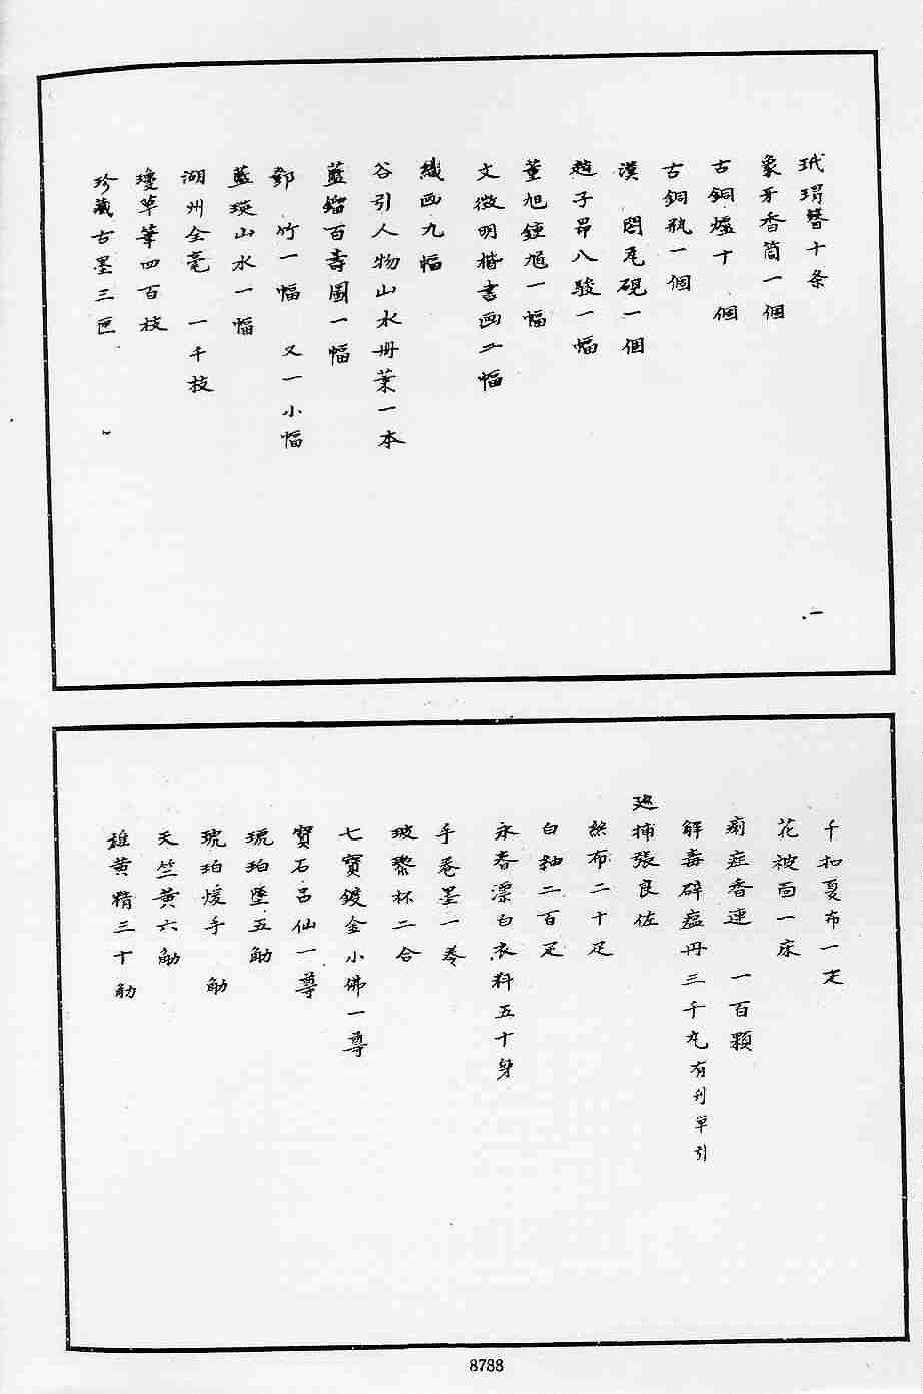 玳瑁簪十条
象牙香筒一個
古銅爐十個
古銅瓶一個
漢 瓦硯一個
趙子昂八駿一幅
董旭鍾馗一幅
文徵明楷書画二幅
織画九幅
谷引人物山水册葉一本
藍瑠百壽圖一幅
鄭 竹一幅 又一小幅
藍瑛山水一幅
湖州全毫 一千枝
瓊草筆四百枝
珍藏古墨三匣
一
千扣夏布一疋
花被面一床
痢症香連 一百顆
解毒辟瘟丹三千丸有刊単引
巡捕張良佐
絲布二十疋
白紬二百疋
永春漂白衣料五十身
手卷墨一卷
玻瓈杯二合
七寶鍍金小佛一尊
寶石吕仙一尊
琥珀墜五觔
琥珀煖手 觔
天竺黄六觔
雄黄精三十觔
8788